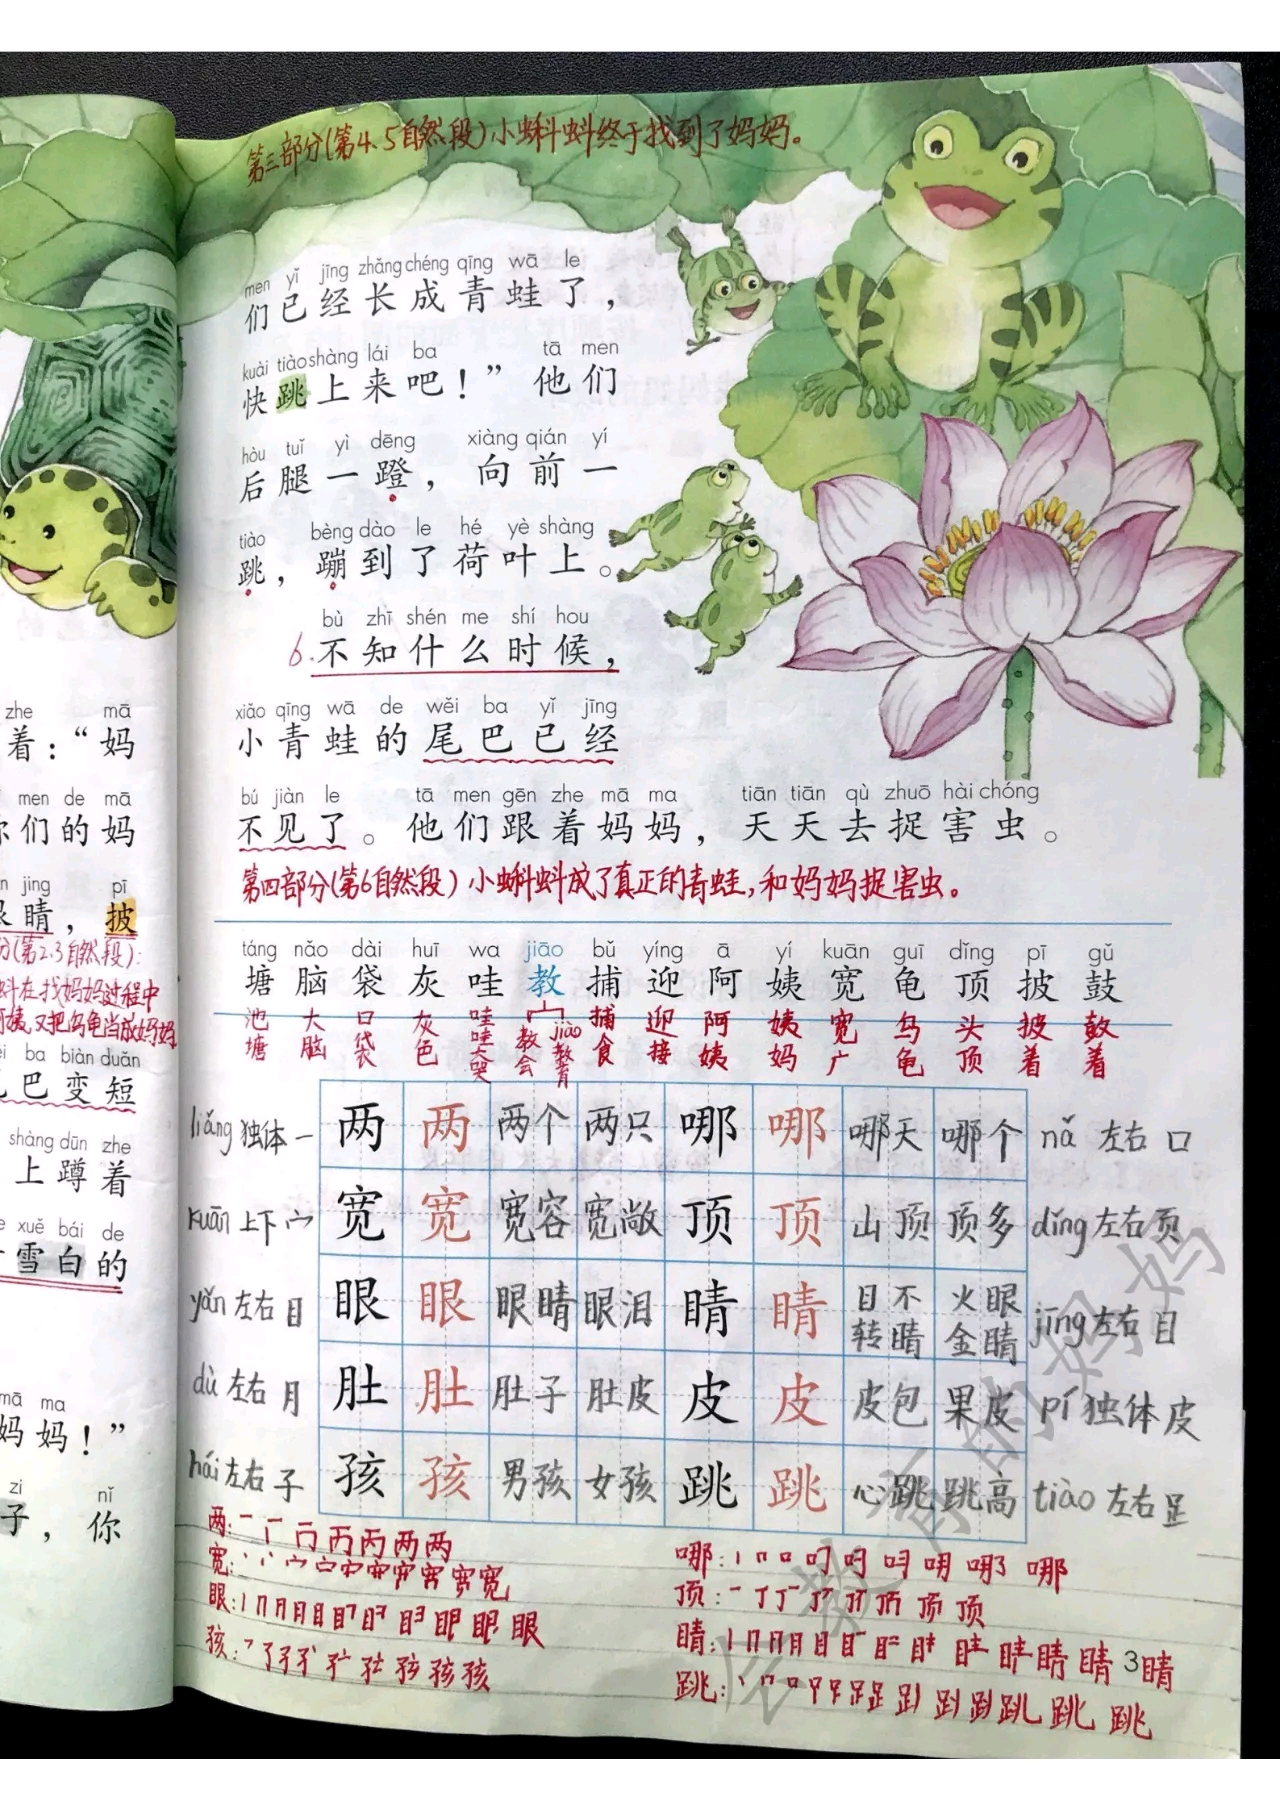 zhe mā
着：“妈
men de mā
你们的妈
jing pī
眼睛，披
分(第2.3自然段)：
蚪在找妈妈过程中
阿姨，又把乌龟当成妈妈
ba biàn duǎn
尾巴变短
shàng dūn zhe
上蹲着
xuě bái de
雪白的
mā ma
妈妈！”
zi nǐ
子，你
第三部分(第4、5自然段)小蝌蚪终于找到了妈妈。
men yǐ jīng zhǎng chéng qīng wā le
们已经长成青蛙了，
kuài tiào shàng lái ba tā men
快跳上来吧！”他们
hòu tuǐ yì dēng xiàng qián yí
后腿一蹬，向前一
tiào bèng dào le hé yè shàng
跳，蹦到了荷叶上。
bù zhī shén me shí hou
6.不知什么时候，
xiǎo qīng wā de wěi ba yǐ jīng
小青蛙的尾巴已经
bú jiàn le tā men gēn zhe mā ma tiān tiān qù zhuō hài chóng
不见了。他们跟着妈妈，天天去捉害虫。
第四部分(第6自然段)小蝌蚪成了真正的青蛙，和妈妈捉害虫。
táng nǎo dài huī wa jiāo bǔ yíng ā yí kuān guī dǐng pī gǔ
塘 脑 袋 灰 哇 教 捕 迎 阿 姨 宽 龟 顶 披 鼓
池塘 大脑 口袋 灰色 哇哇大哭 教会 jiào教育 捕食 迎接 阿姨 姨妈 宽广 乌龟 头顶 披着 鼓着
liǎng 独体 一 两 两 两个 两只 哪 哪 哪天 哪个 nǎ 左右 口
kuān 上下 宀 宽 宽 宽容 宽敞 顶 顶 山顶 顶多 dǐng 左右 页
yǎn 左右 目 眼 眼 眼睛 眼泪 睛 睛 目不转睛 火眼金睛 jīng 左右 目
dù 左右 月 肚 肚 肚子 肚皮 皮 皮 皮包 果皮 pí 独体 皮
hái 左右 子 孩 孩 男孩 女孩 跳 跳 心跳 跳高 tiào 左右 足
两：一 丆 丙 两 两
宽：丶 宀 宽
眼：丨 冂 月 目 眼 眼
孩：乛 了 子 孩 孩 孩
哪：丨 口 叨 哪 哪
顶：一 丁 顶 顶
睛：丨 冂 月 目 睛 睛 睛
跳：丨 口 趴 跳 跳
3
会教育的妈妈